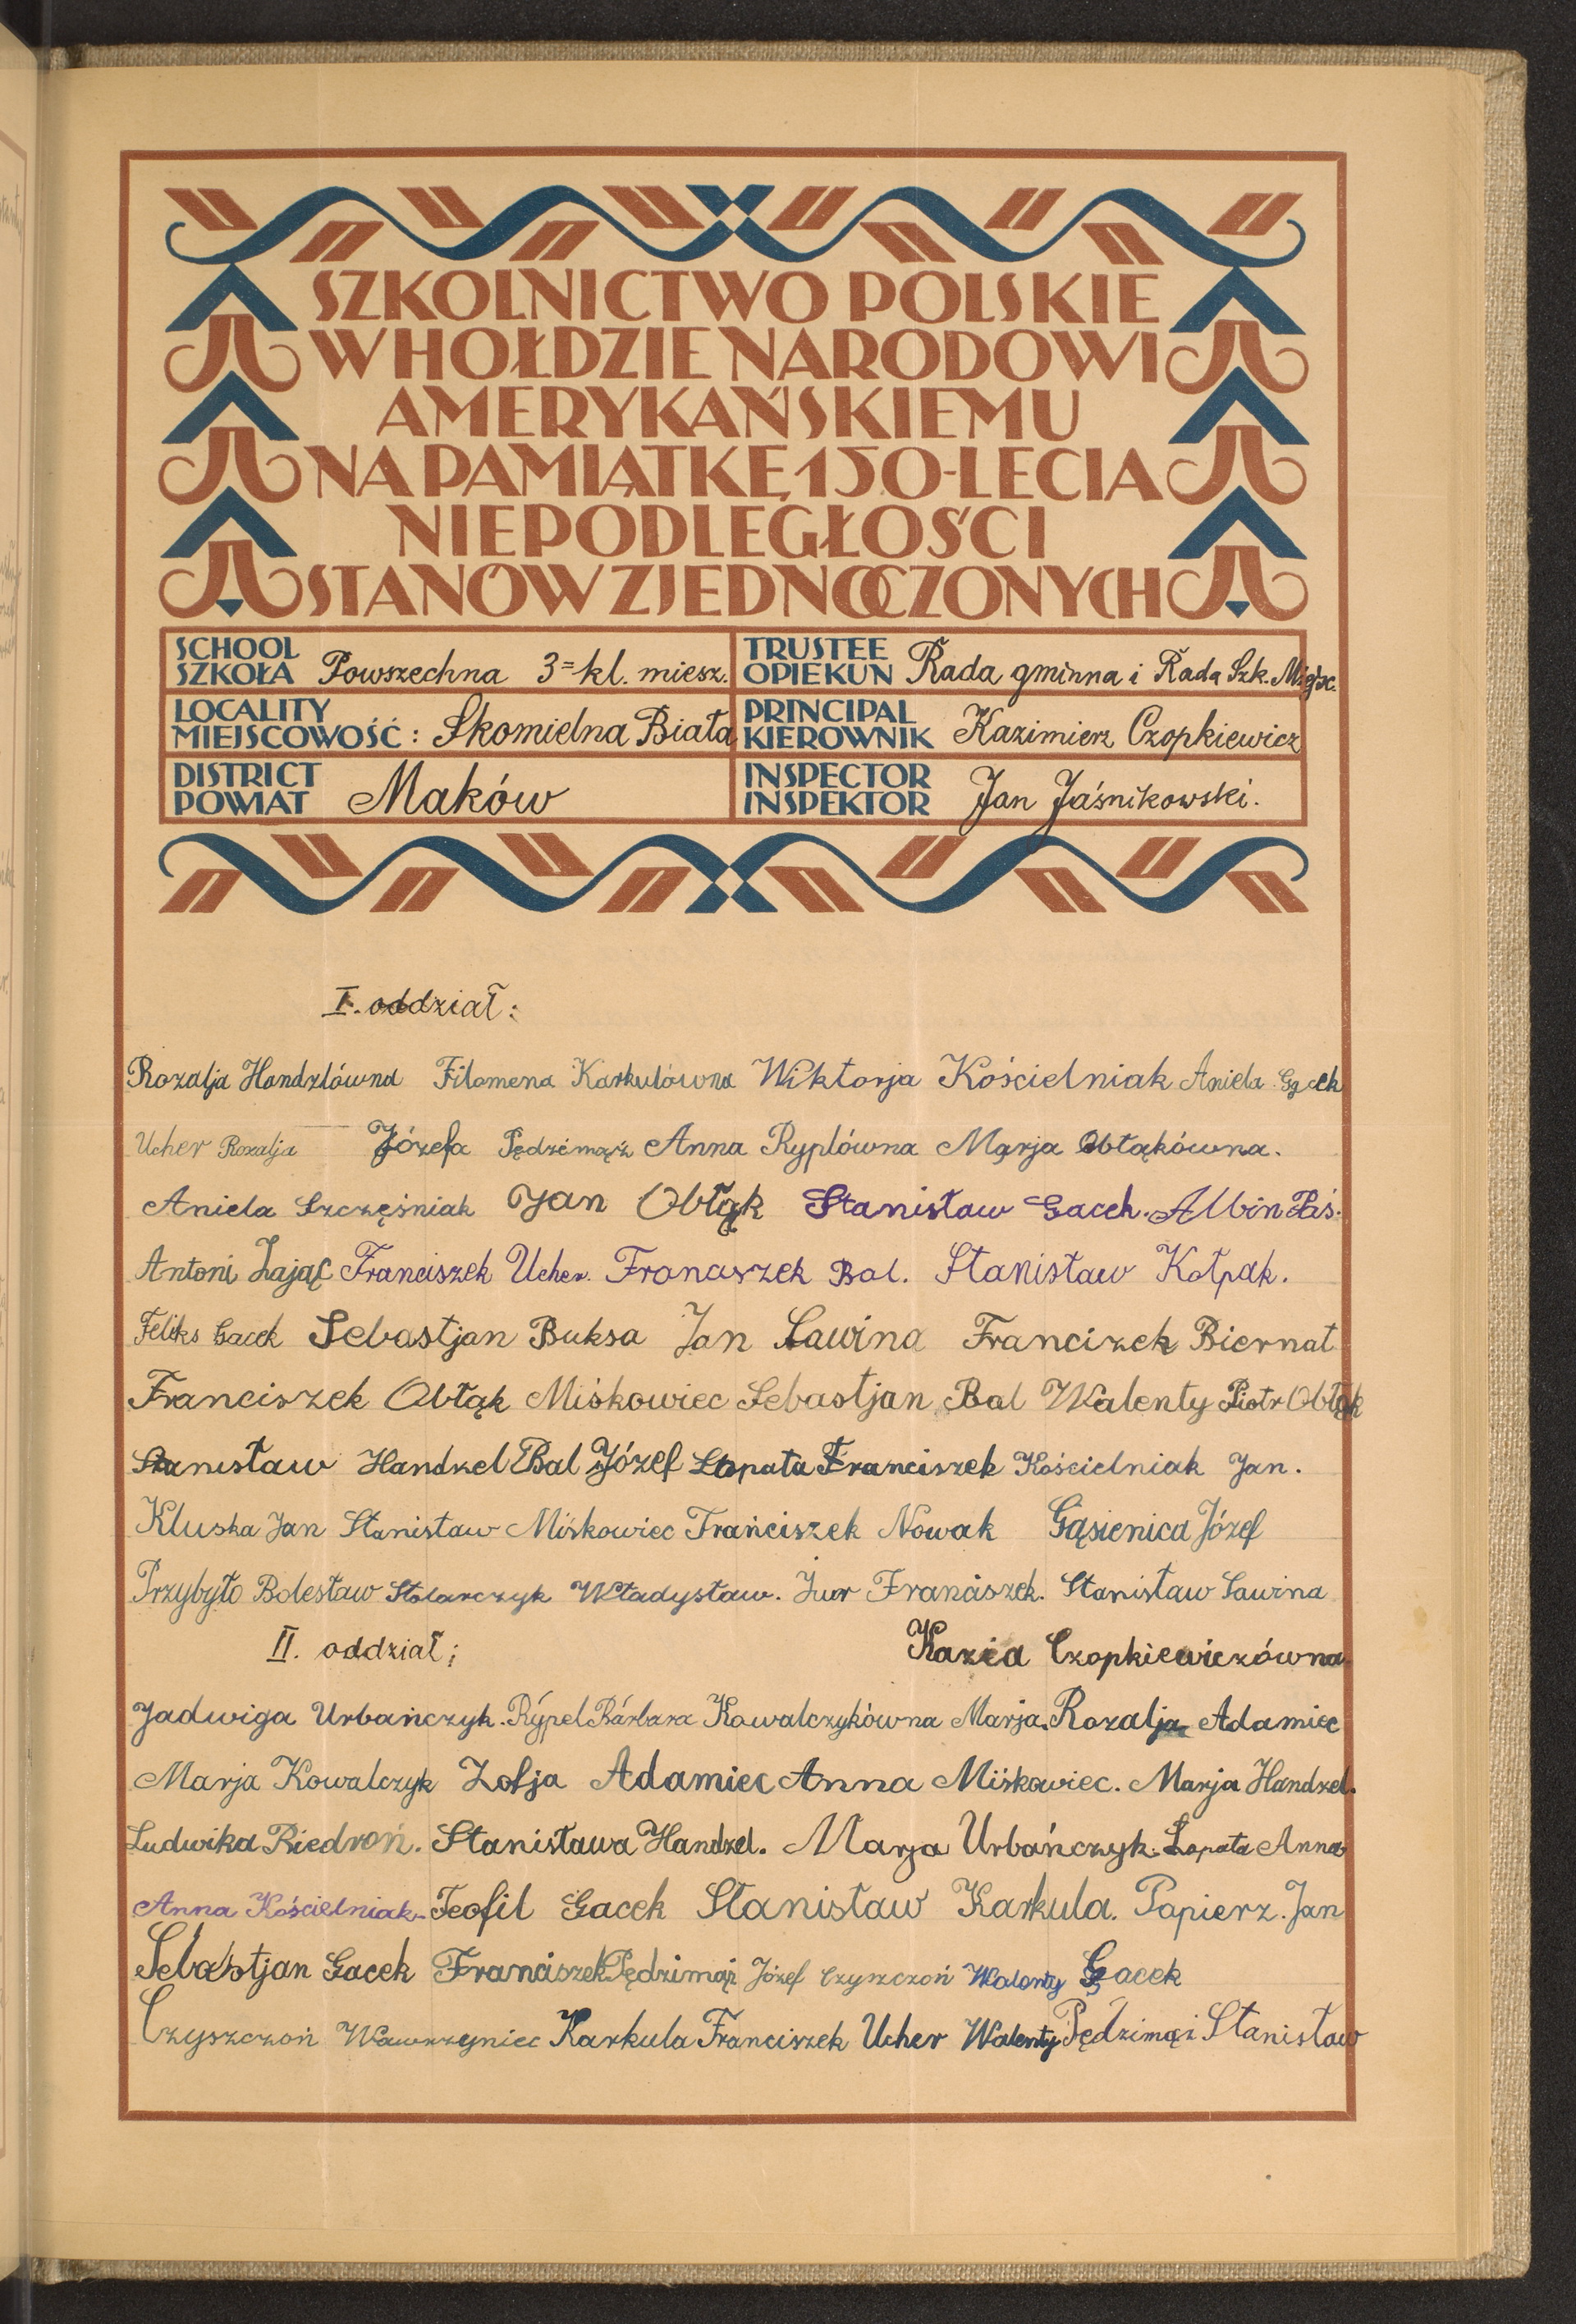 SZKOLNICTWO POLSKIE
W HOŁDZIE NARODOWI
AMERYKAŃSKIEMU
NA PAMIĄTKĘ 150-LECIA
NIEPODLEGŁOŚCI
STANÓW ZJEDNOCZONYCH
SCHOOL
SZKOŁA Powszechna 3=kl. miesz.
TRUSTEE
OPIEKUN Rada gminna i Rada Szk. Miejsc.
LOCALITY
MIEJSCOWOŚĆ: Skomielna Biała
PRINCIPAL
KIEROWNIK Kazimierz Czopkiewicz
DISTRICT
POWIAT Maków
INSPECTOR
INSPEKTOR Jan Jaśnikowski.
I. oddział:
Rozalja Handzlówna Filomena Karkulówna Wiktorja Kościelniak Aniela Gacek
Ucher Rozalja Józefa Pędzimąż Anna Ryplówna Marja Obłąkówna.
Aniela Szczęśniak Jan Obłąk Stanisław Gacek. Albin Paś.
Antoni Zając Franciszek Ucher. Franciszek Bal. Stanisław Kołpak.
Feliks Gacek Sebastjan Buksa Jan Ławina Francizek Biernat
Franciszek Obłąk Miśkowiec Sebastjan Bal Walenty Piotr Obłąk
Stanisław Handzel Bal Józef Łopata Franciszek Kościelniak Jan.
Kluska Jan Stanisław Miśkowiec Franciszek Nowak Gąsienica Józef
Przybyło Bolesław Stolarczyk Władysław. Żur Franciszek. Stanisław Ławina
II. oddział; Kazia Czopkiewiczówna.
Jadwiga Urbańczyk. Rypel Barbara Kowalczykówna Marja. Rozalja Adamiec
Marja Kowalczyk Zofja Adamiec Anna Miśkowiec. Marja Handzel.
Ludwika Biedroń. Stanisława Handzel. Marja Urbańczyk. Łopata Anna
Anna Kościelniak- Teofil Gacek Stanisław Karkula. Papierz. Jan
Sebastjan Gacek Franciszek Pędzimąż Józef Czyszczoń Walenty Gacek
Czyszczoń Wawrzyniec Karkula Franciszek Ucher Walenty Pędzimąż Stanisław